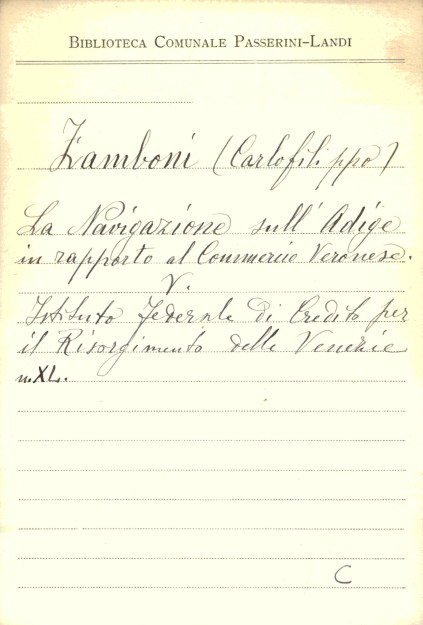 BIBLIOTECA COMUNALE PASSERINI-LANDI
Zamboni (Carlofilippo)
La Navigazione sull'Adige
in rapporto al Commercio Veronese.
V.
Istituto Federale di Credito per
il Risorgimento delle Venezie
n. XL.
C